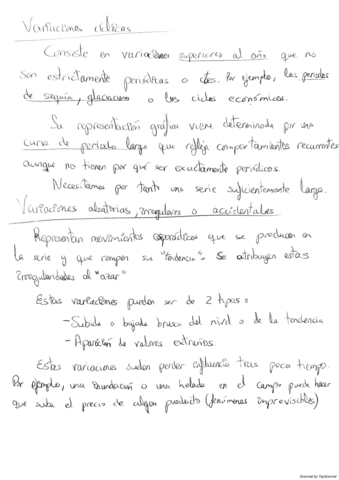 Variaciones cíclicas
Consiste en variaciones superiores al año que no
son estrictamente periódicas o ctes. Por ejemplo, los periodos
de sequía, glaciaciones o los ciclos económicos.
Su representación gráfica viene determinada por una
curva de periodo largo que refleja comportamientos recurrentes
aunque no tienen por qué ser exactamente periódicos.
Necesitamos por tanto una serie suficientemente larga.
Variaciones aleatorias, irregulares o accidentales
Representan movimientos esporádicos que se producen en
la serie y que rompen su "tendencia". Se atribuyen estas
irregularidades al "azar"
Estas variaciones pueden ser de 2 tipos:
- Subida o bajada brusca del nivel o de la tendencia
- Aparición de valores extraños.
Estas variaciones suelen perder influencia tras poco tiempo.
Por ejemplo, una inundación o una helada en el campo puede hacer
que suba el precio de algún producto (fenómenos imprevisibles)
Scanned by TapScanner